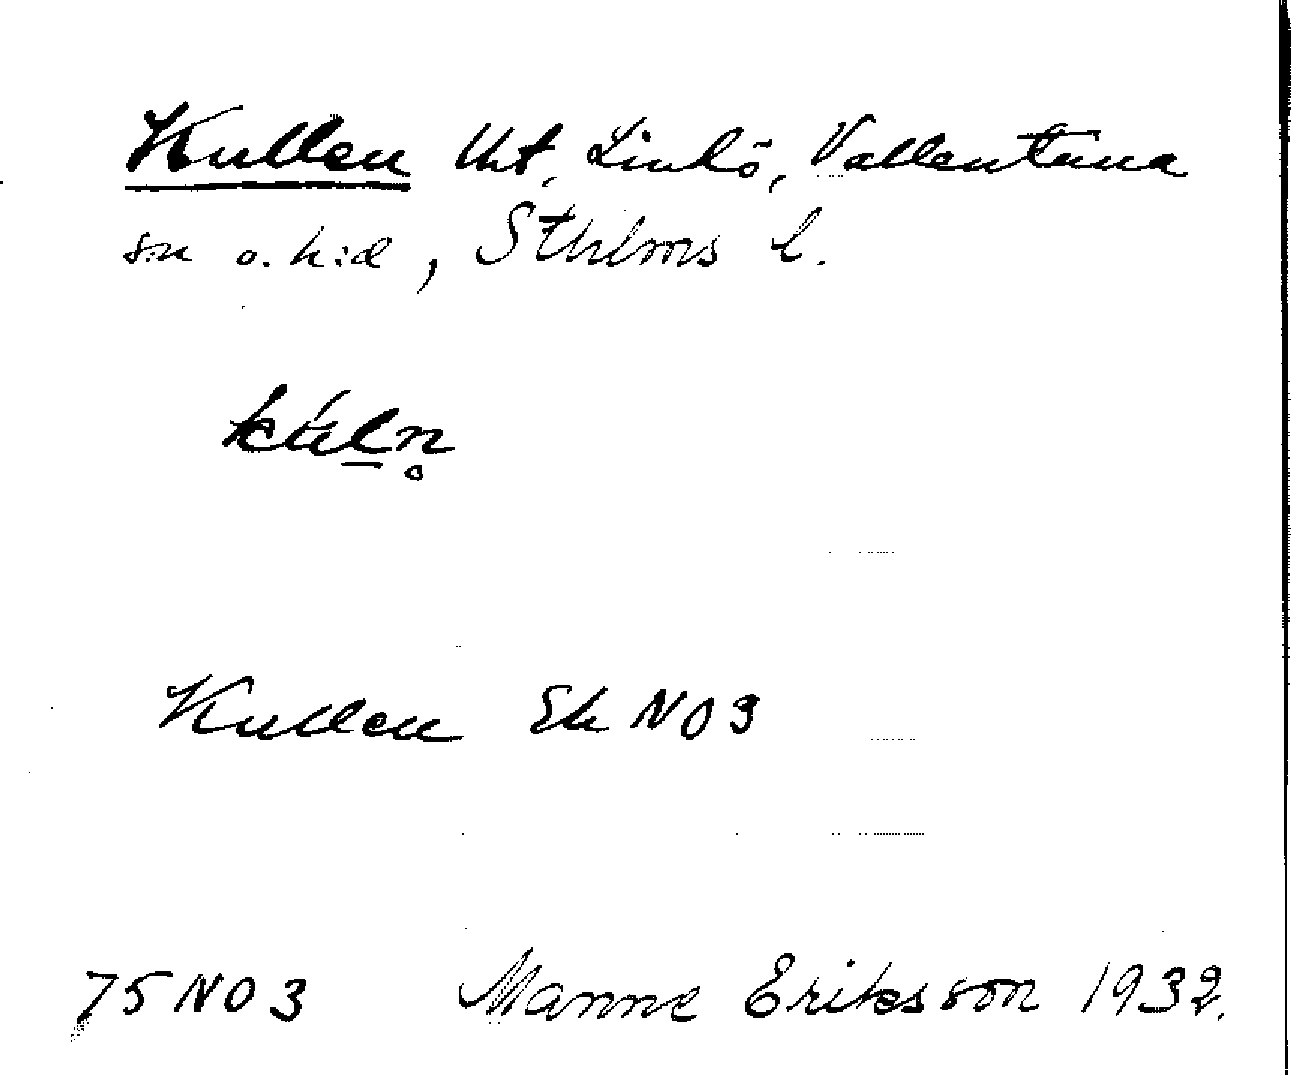 Kullen tht, Lindö, Vallentuna
sn o. h:d, Sthlms l.
Kullen Ek NO 3
75 NO 3 Manne Eriksson 1932.